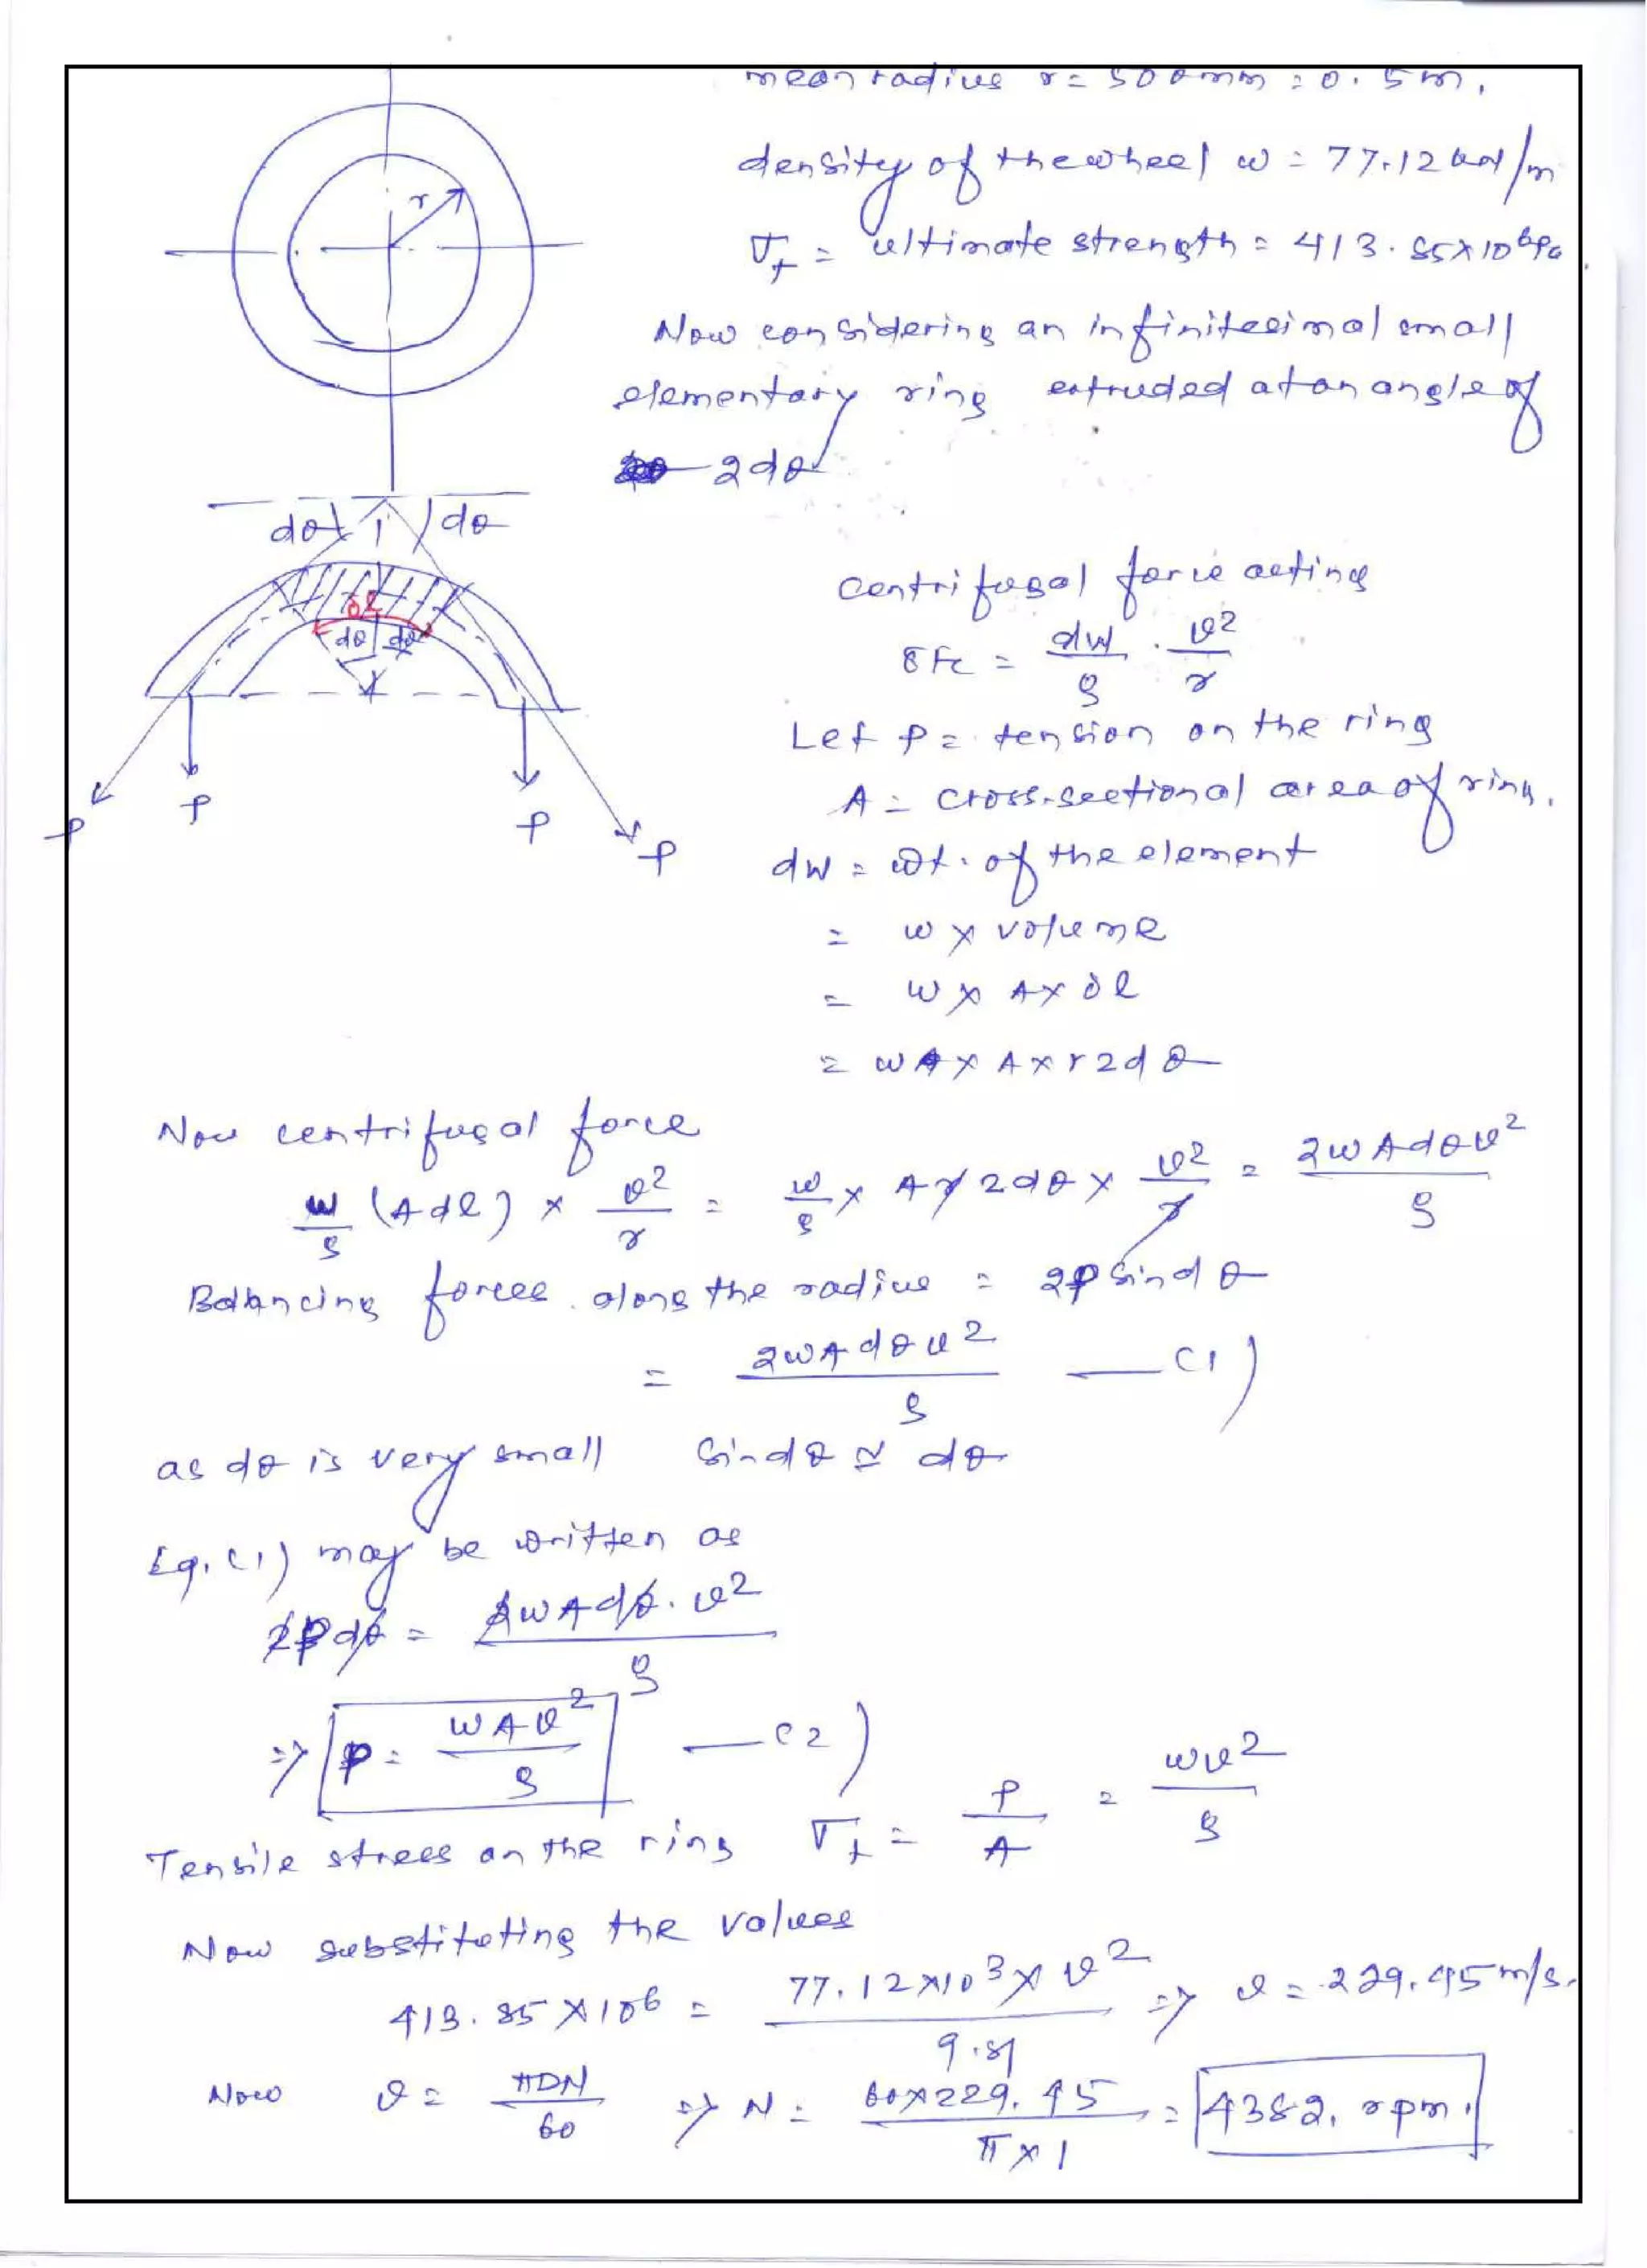 mean radius r = 500mm = 0.5m,
density of the wheel w = 77.12 kN/m
σt = ultimate strength = 413.85×10⁶Pa
r
Now considering an infinitesimal small
elementary ring extruded at an angle of
2dθ
dθ dθ
Centrifugal force acting
δl
dθ dθ
δFc = dw/g · v²/r
Let P = tension on the ring
A = cross-sectional area of ring.
P P P P
dw = wt. of the element
= w × volume
= w × A × δl
= w × A × r 2dθ
Now centrifugal force
w/g (Adl) × v²/r = w/g × A r 2dθ × v²/r = 2wAdθv²/g
Balancing forces along the radius = 2P sindθ
= 2wAdθv²/g —(1)
as dθ is very small Sindθ ≃ dθ
Eq. (1) may be written as
2Pdθ = 2wAdθ.v²/g
⇒ P = wAv²/g —(2)
Tensile stress on the ring σt = P/A = wv²/g
Now substituting the values
413.85×10⁶ = 77.12×10³×v²/9.81 ⇒ v = 229.45m/s.
Now v = πDN/60 ⇒ N = 60×229.45/π×1 = 4382. rpm.